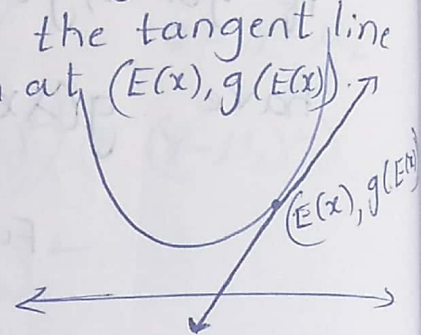 the tangent line
at (E(x), g(E(x)).
(E(x), g(E(x)